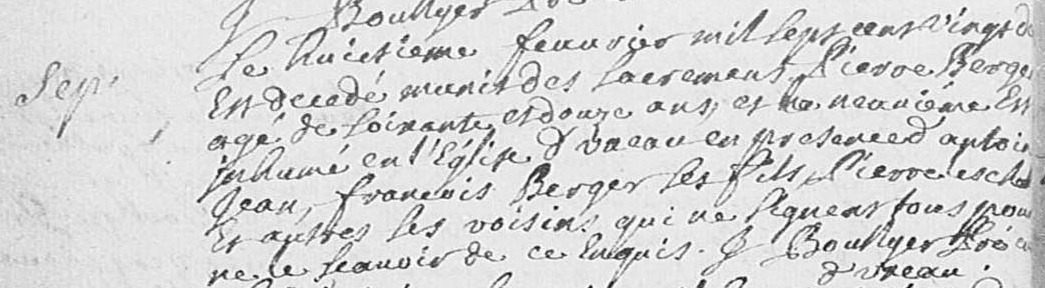 J Boullyer
Sep.
Le huictieme feauvrier mil sept cens vingt d
Est decedé munit des sacrement Pierre Berger
agé de soixante et douze ans, et ne neauviéme Est
inhumé en l'Église d'ureau en presence d'antoi
Jean, francois Berger ses fils Pierre
Et autres ses voisins qui ne signent tous pour
ne le scauoir de ce Enquis. J Boullyer
d'ureau.